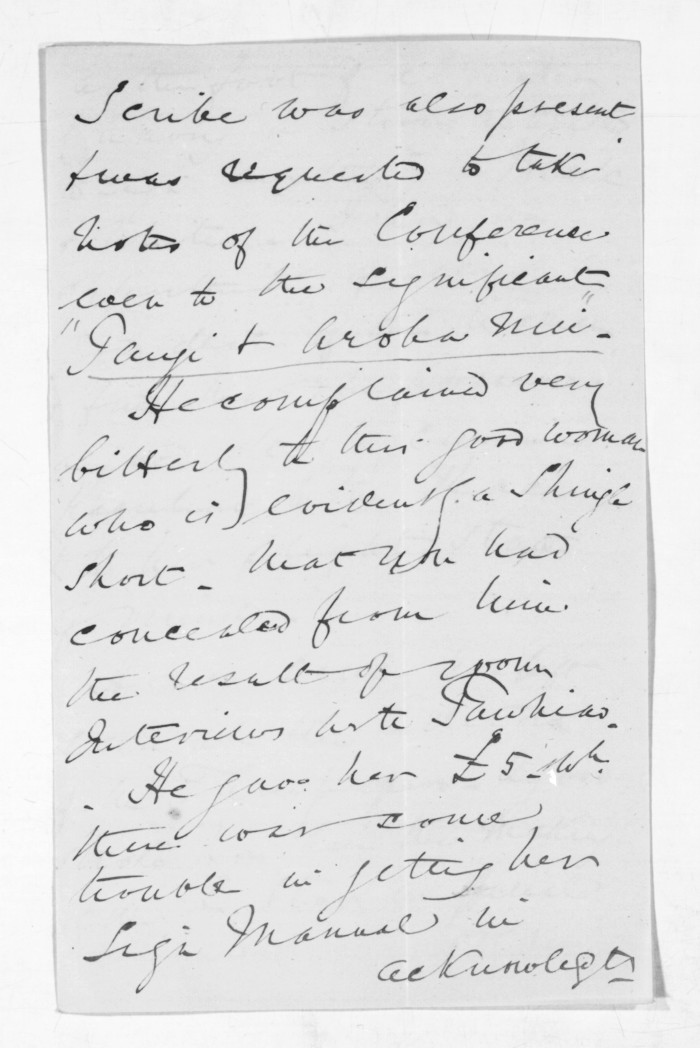 Scribe was also present
& was requested to take
notes of the Conference
even to the significant
"Tangi & Aroha nui" -
He complained very
bitterly to this good woman
who is evidently a Shingle
short - that you had
concealed from him
the result of your
Interviews with Tawhiao.
- He gave her £5 &
there was some
trouble in getting her
Sign Manual in
acknowledgt